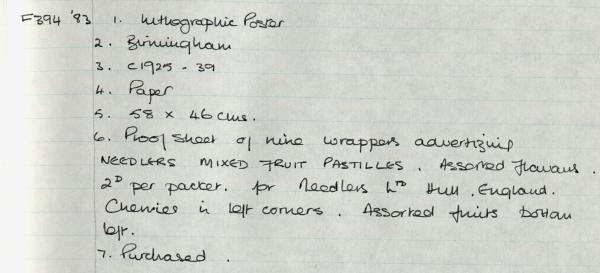 F394 '83 1. Lithographic Poster
2. Birmingham
3. C1925 - 39
4. Paper
5. 58 x 46 cms.
6. Proof sheet of nine wrappers advertizing
NEEDLERS MIXED FRUIT PASTILLES. Assorted flavours.
2D per packet. for Needlers LTD Hull. England.
Cherries in left corners. Assorted fruits bottom
left.
7. Purchased.